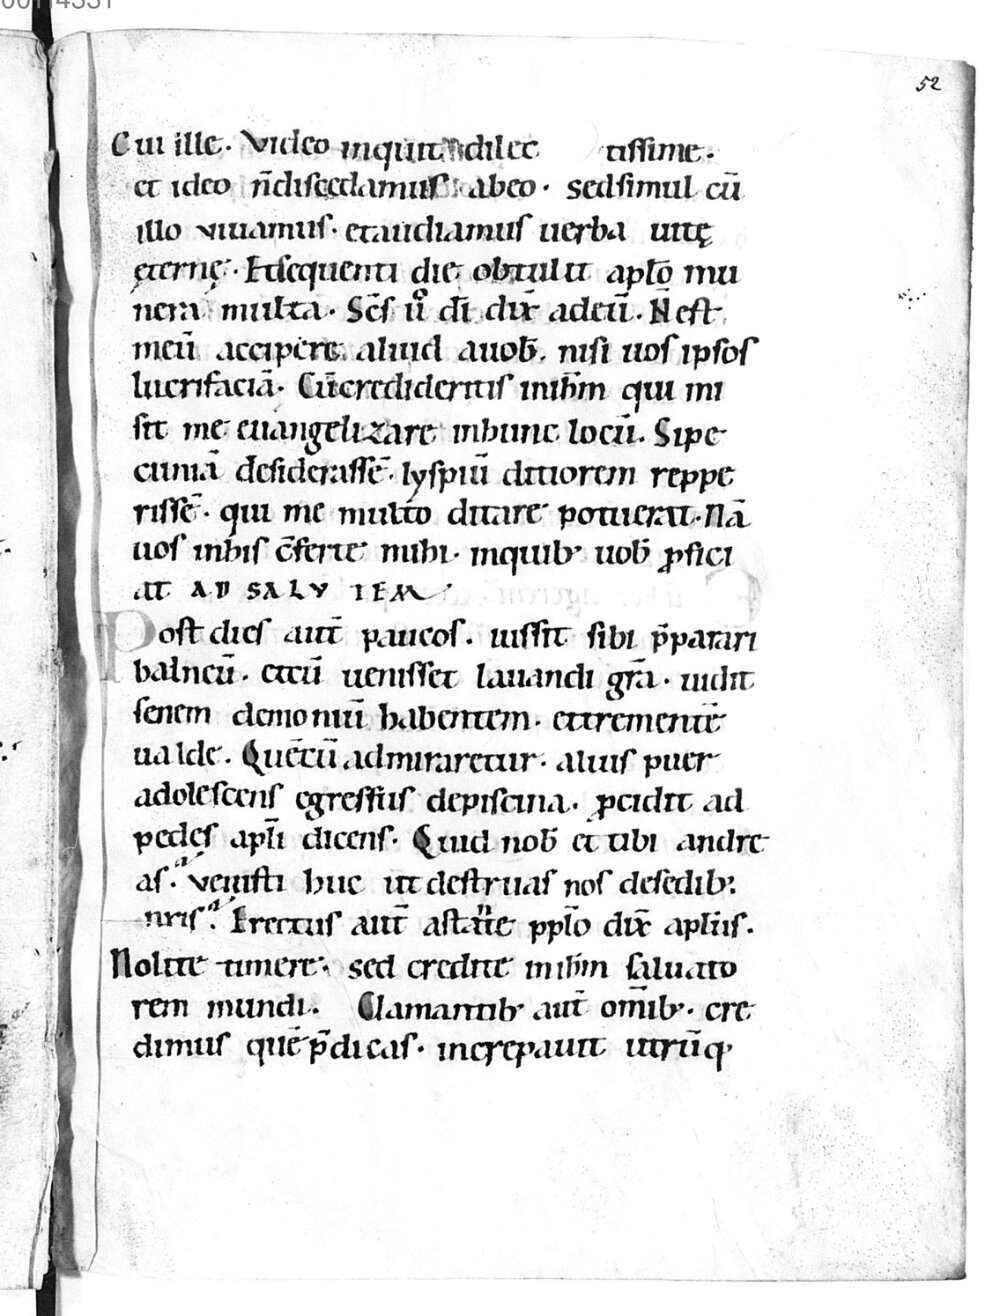 00114331
52
Cui ille. Video inquit dilec tissime.
et ideo n̄discedamus abeo. sedsimul cū
illo uiuamus. etaudiamus uerba uitę
ęternę. Etsequenti die obtulit aplo̅ mu
nera multa. Sc̅s u̅o di̅ dix̅ adeū. N̄ est
meū accipere aliud auob̅. nisi uos ipsos
lucrifaciā. Cu̅credideritis inihm̅ qui mi
sit me euangelizare inhunc locū. Sipe
cuniā desiderassē. lyspiū ditiorem reppe
rissē. qui me multo ditare potuerat. Nā
uos inhis c̅ferte mihi. inquib; uob̅ ꝓfici
at AD SALVTEM.
Post dies aut̅ paucos. iussit sibi p̅parari
balneū. etcū uenisset lauandi gr̅a. uidit
senem demoniū habentem. ettrementē
ualde. Quēcū admiraretur. alius puer
adolescens egressus depiscina. ꝓcidit ad
pedes apli̅ dicens. Quid nob̅ et tibi andre
as. Venisti huc ut destruas nos desedib;
nris̅. Erectus aut̅ astante pplo̅ dix̅ apl̅us.
Nolite timere. sed credite inihm̅ saluato
rem mundi. Clamantib; aut̅ om̅ib;. cre
dimus quē p̅dicas. increpauit utrūq;